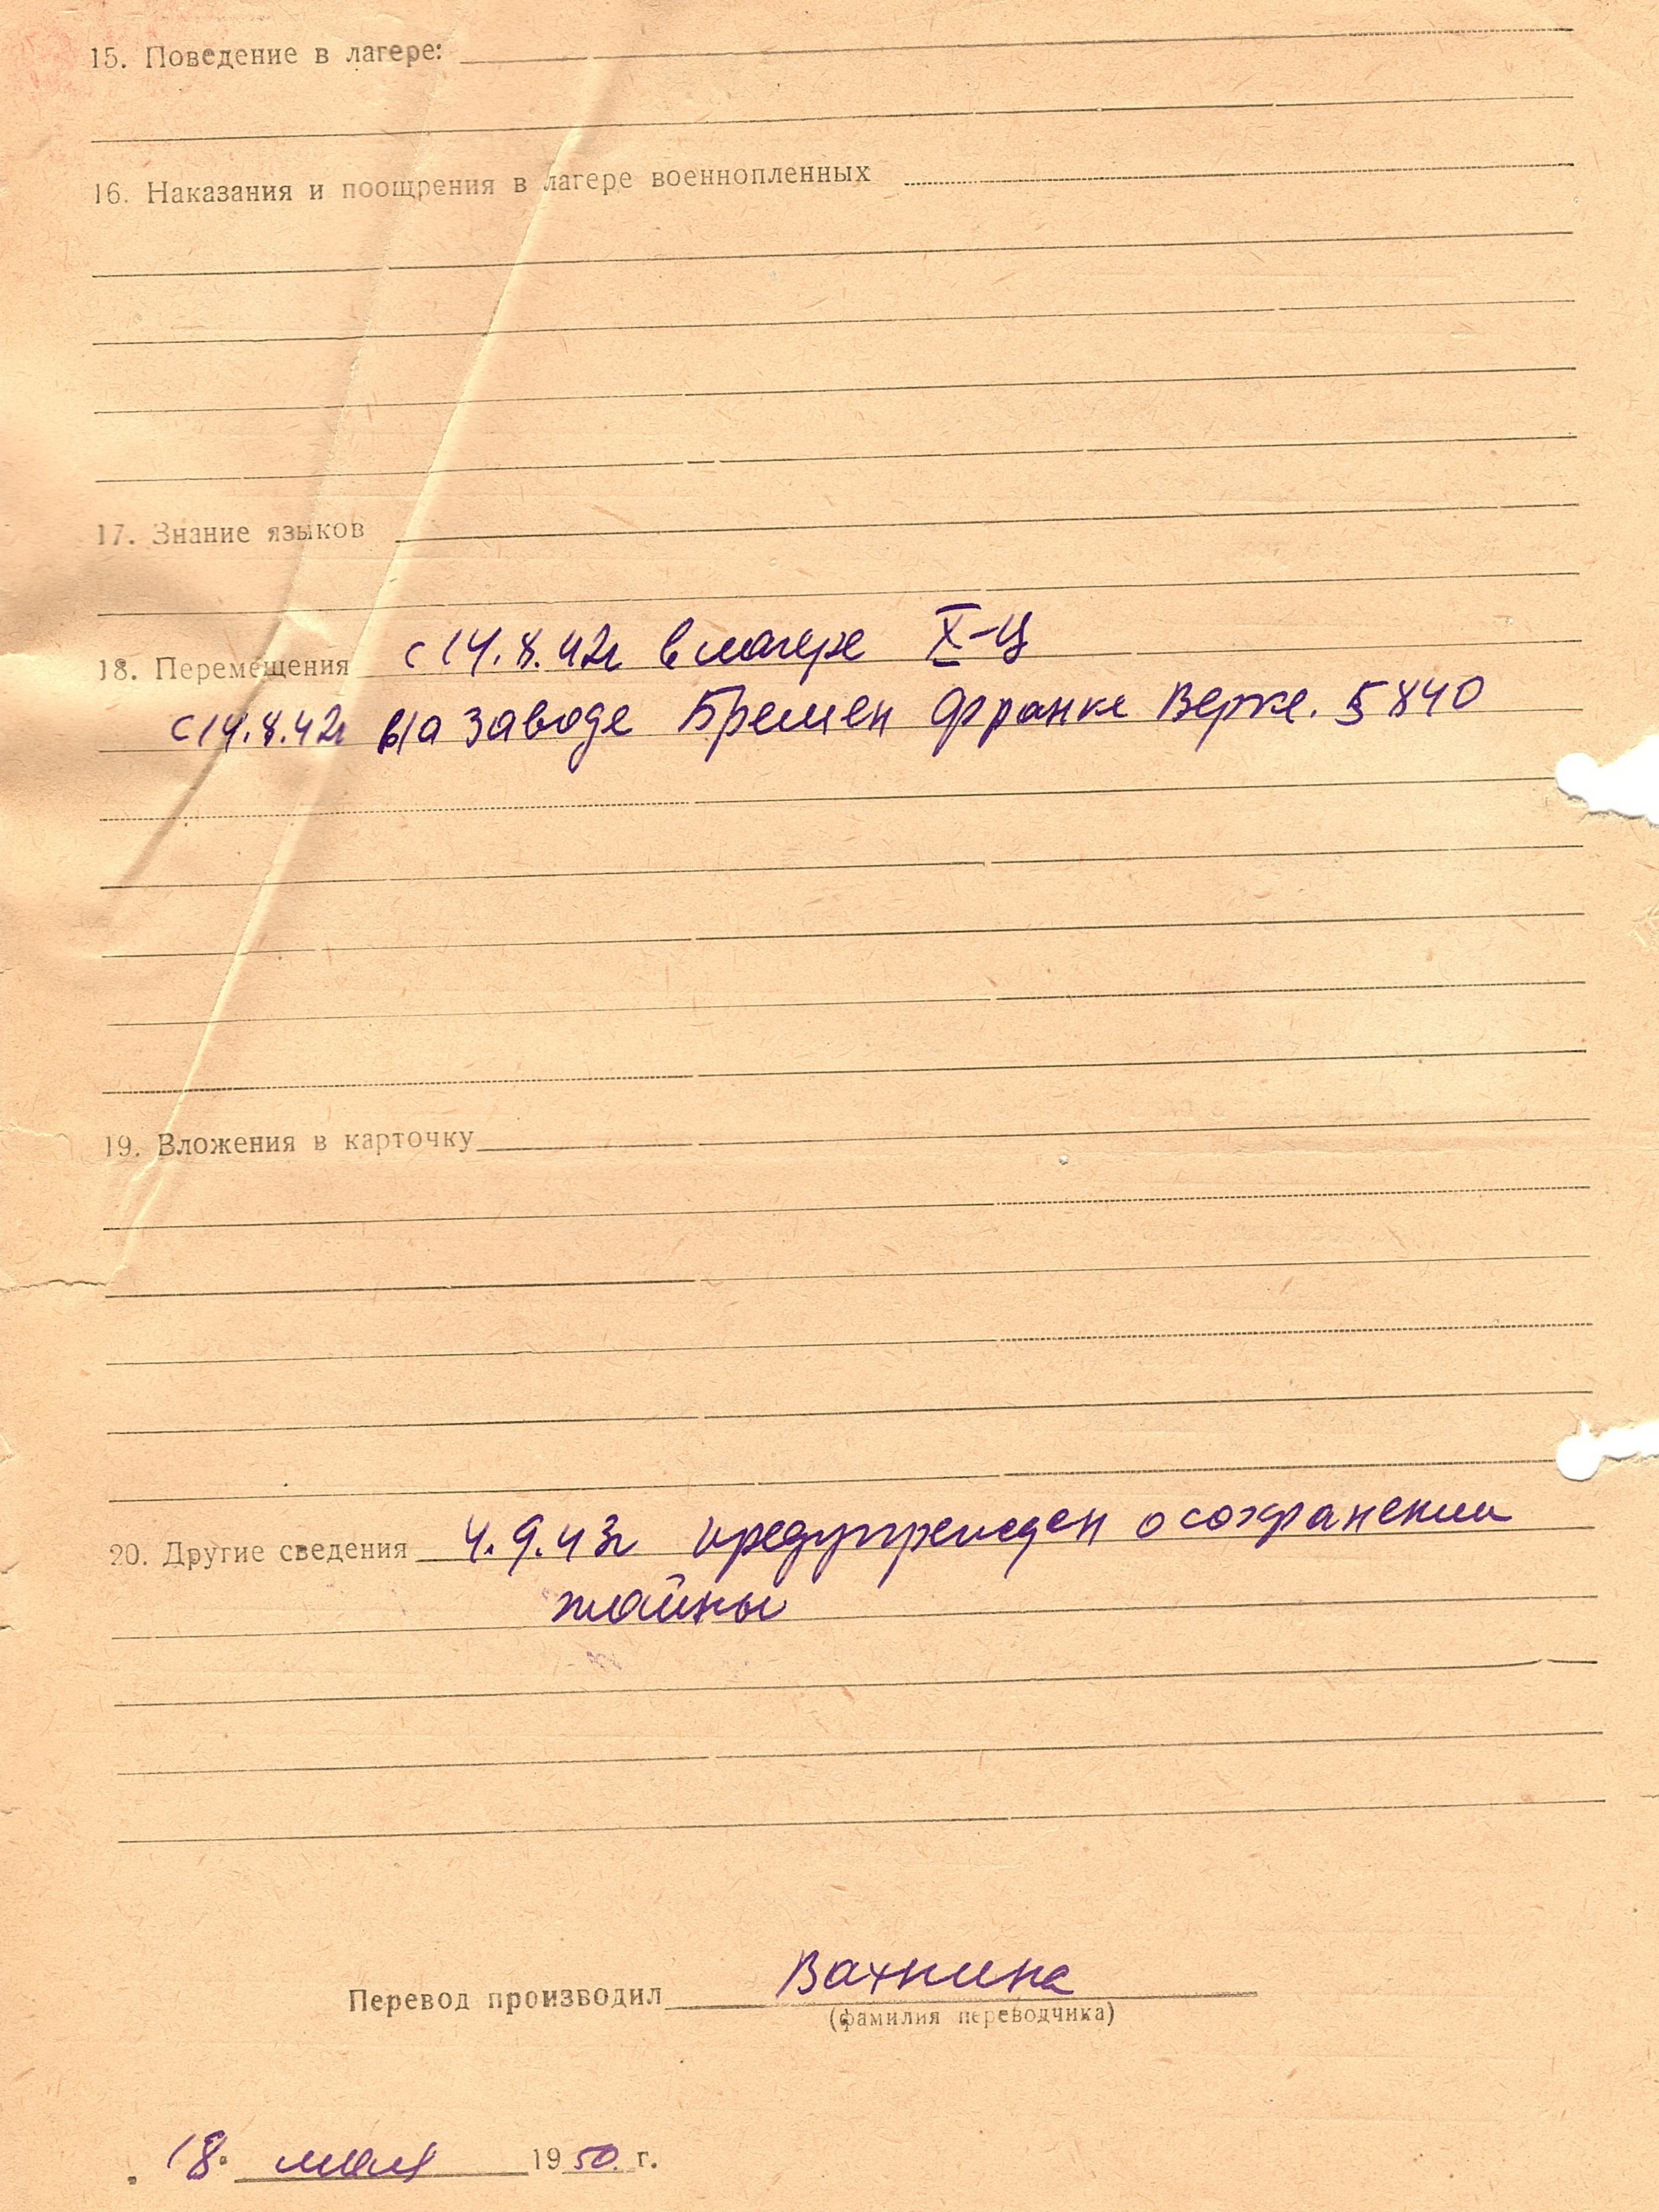 15. Поведение в лагере:
16. Наказания и поощрения в лагере военнопленных
17. Знание языков
18. Перемещения с 14.8.42г в лагере X-Ц
с 14.8.42г на заводе Бремен Франке Верке. 5840
19. Вложения в карточку
20. Другие сведения 4.9.43г предупрежден о сохранении
тайны
Перевод производил Вахнина
(фамилия переводчика)
18. мая 1950. г.